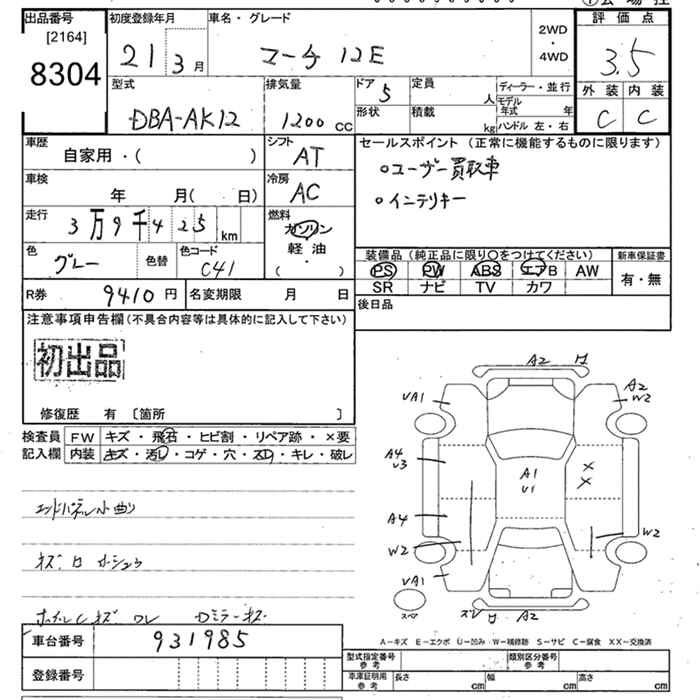 出品番号 初度登録年月 車名・グレード 評価点
[2164]
8304
21 3月 マーチ 12E 2WD・4WD 3.5
型式 排気量 ドア 定員 ディーラー・並行 外装 内装
DBA-AK12 1200 cc 5 人 モデル年式 年 C C
形状 積載 kg ハンドル 左・右
車歴 シフト セールスポイント (正常に機能するものに限ります)
自家用・( ) AT
○ユーザー買取車
車検 冷房
年 月( 日) AC
○インテリキー
走行 燃料
3万9千425km ガソリン
軽油
・
( )
色 色替 色コード
グレー C41
装備品 (純正品に限り○をつけてください) 新車保証書
PS PW ABS エアB AW 有・無
SR ナビ TV カワ
R券 9410円 名変期限 月 日
後日品
注意事項申告欄(不具合内容等は具体的に記入して下さい)
初出品
修復歴 有 〔箇所 〕
検査員記入欄
FW キズ・飛石・ヒビ割・リペア跡・×要
内装 キズ・汚レ・コゲ・穴・スレ・キレ・破レ
A2
VA1
A2
W2
A4
V3
A1
U1
×
×
A4
W2
W2
VA1
スペア
A2
車台番号 931985
登録番号
A-キズ E-エクボ U-凹み W-補修跡 S-サビ C-腐食 XX-交換済
型式指定番号 参考 類別区分番号 参考
車庫証明用 参考 長さ cm 幅 cm 高さ cm